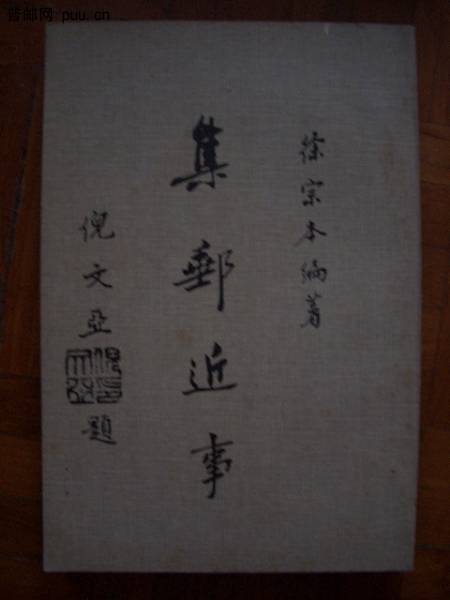 普邮网 puu.cn
徐宗本編著
集郵近事
倪文亞
題